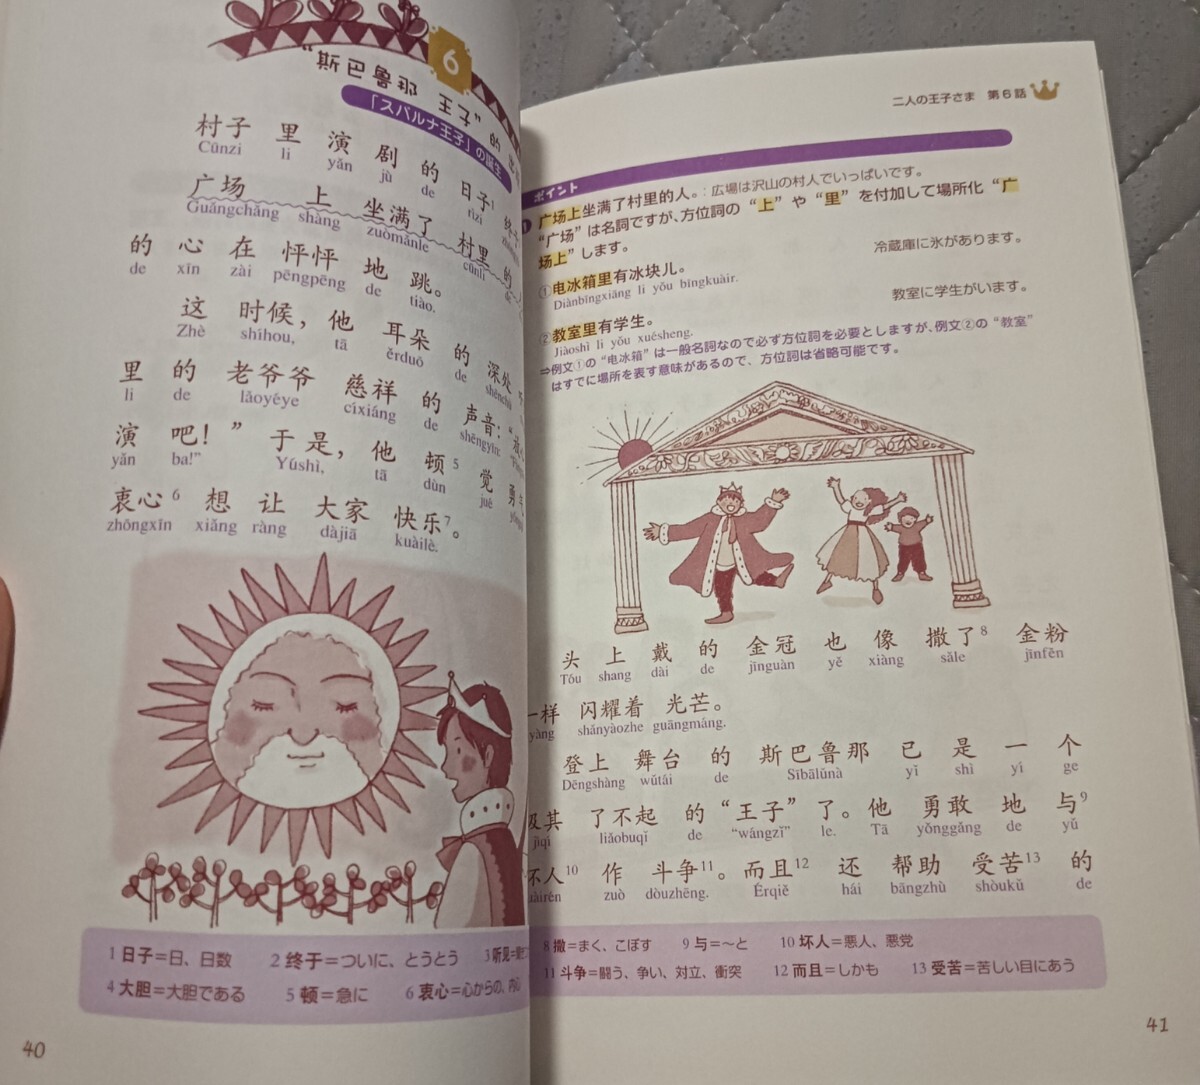 6
“斯巴鲁那 王子” 的
「スバルナ王子」の誕生
村子 里 演 剧 的 日子1 终于
Cūnzi li yǎn jù de rìzi
广场 上 坐满了 村里 的
Guǎngchǎng shàng zuòmǎnle cūnli de
的 心 在 怦怦 地 跳。
de xīn zài pēngpēng de tiào.
这 时候，他 耳朵 的 深处
Zhè shíhou, tā ěrduō de shēnchù
里 的 老爷爷 慈祥 的 声音：“
li de lǎoyéye cíxiáng de shēngyīn:
演 吧！” 于是，他 顿5 觉 勇
yǎn ba!” Yúshì, tā dùn jué
衷心6 想 让 大家 快乐7。
zhōngxīn xiǎng ràng dàjiā kuàilè.
1 日子＝日、日数 2 终于＝ついに、とうとう 3 听见＝
4 大胆＝大胆である 5 顿＝急に 6 衷心＝心からの、内心
40
二人の王子さま 第6話
ポイント
1 广场上坐满了村里的人。：広場は沢山の村人でいっぱいです。
“广场” は名詞ですが、方位詞の “上” や “里” を付加して場所化 “广
场上” します。
①电冰箱里有冰块儿。 冷蔵庫に氷があります。
Diànbīngxiāng li yǒu bīngkuàir.
②教室里有学生。 教室に学生がいます。
Jiàoshì li yǒu xuésheng.
⇒例文①の “电冰箱” は一般名詞なので必ず方位詞を必要としますが、例文②の “教室”
はすでに場所を表す意味があるので、方位詞は省略可能です。
头 上 戴 的 金冠 也 像 撒了8 金粉
Tóu shang dài de jīnguàn yě xiàng sǎle jīnfěn
一样 闪耀着 光芒。
yàng shǎnyàozhe guāngmáng.
登上 舞台 的 斯巴鲁那 已 是 一 个
Dēngshàng wǔtái de Sībālǔnà yǐ shì yí ge
极其 了不起 的 “王子” 了。他 勇敢 地 与9
jíqí liǎobuqǐ de “wángzǐ” le. Tā yǒnggǎng de yǔ
坏人10 作 斗争11。而且12 还 帮助 受苦13 的
uàirén zuò dòuzhēng. Érqiě hái bāngzhù shòukǔ de
8 撒＝まく、こぼす 9 与＝～と 10 坏人＝悪人、悪党
11 斗争＝闘う、争い、対立、衝突 12 而且＝しかも 13 受苦＝苦しい目にあう
41